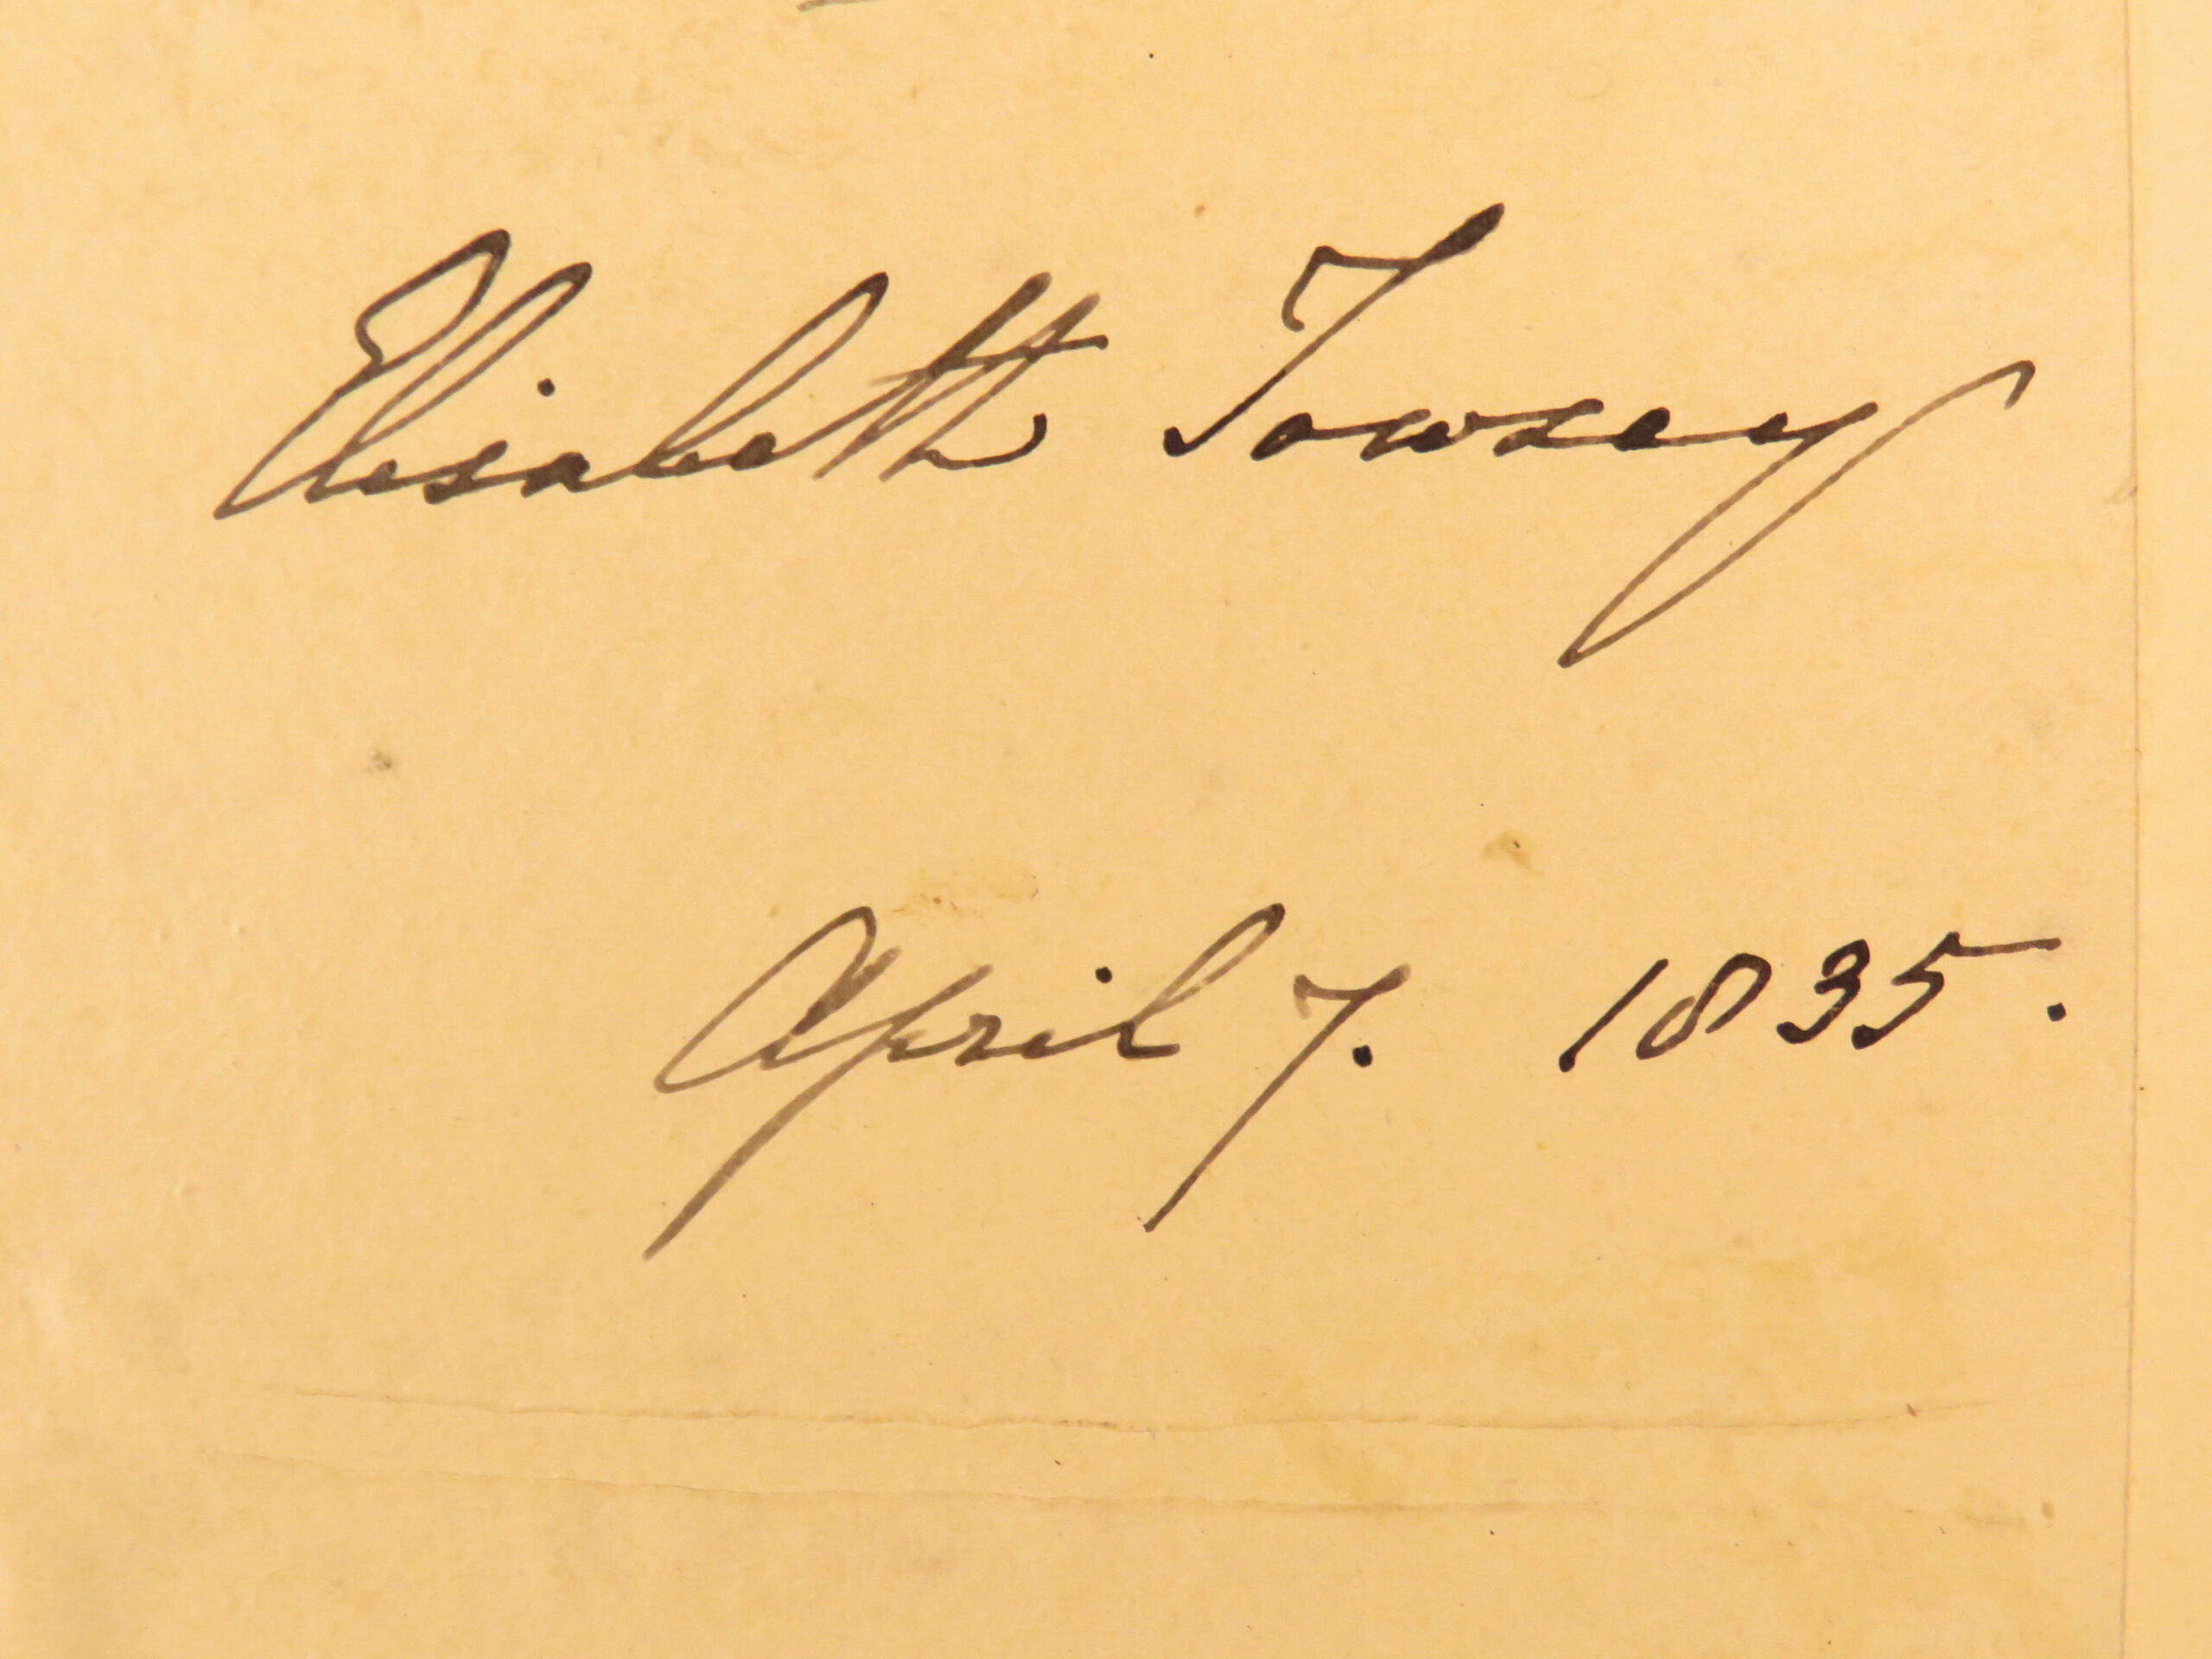 Elisabeth Towsey
April 7. 1835.